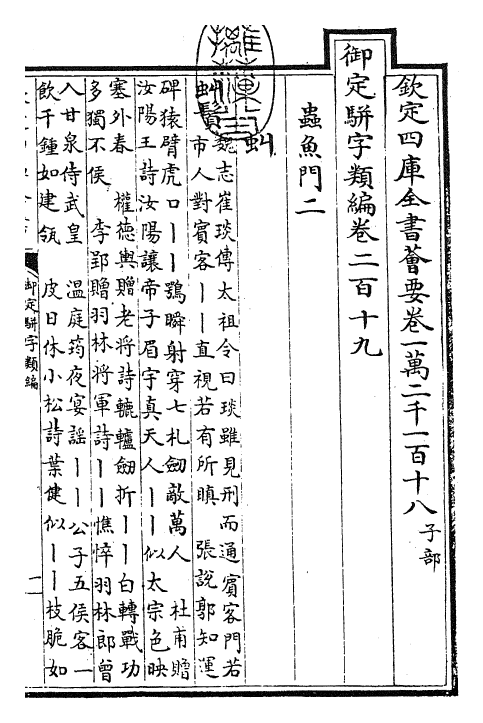 欽定四庫全書薈要卷一萬二千一百十八子部
御定駢字類編卷二百十九
蟲魚門二
虯
虯鬚魏志崔琰傳太祖令曰琰雖見刑而通賓客門若
市人對賓客丨丨直視若有所瞋 張說郭知運
碑猿臂虎口丨丨鶚瞬射穿七札劒敵萬人 杜甫贈
汝陽王詩汝陽讓帝子眉宇真天人丨丨似太宗色映
塞外春 權德輿贈老將詩轆轤劒折丨丨白轉戰功
多獨不侯 李郢贈羽林將軍詩丨丨憔悴羽林郎曾
入甘泉侍武皇 溫庭筠夜宴謠丨丨公子五侯客一
飲千鍾如建瓴 皮日休小松詩葉健似丨丨枝脆如
御定駢字類編
一